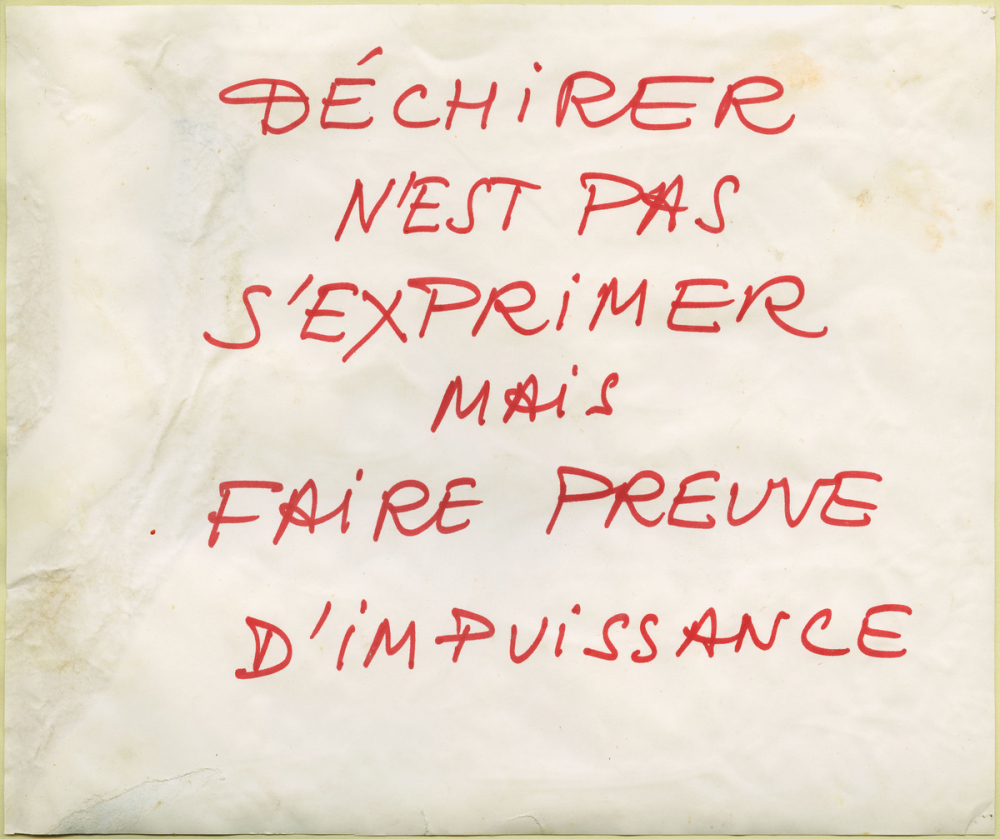 DÉCHiRER
N'EST PAS
S'EXPRiMER
MAiS
FAiRE PREUVE
D'iMPUiSSANCE